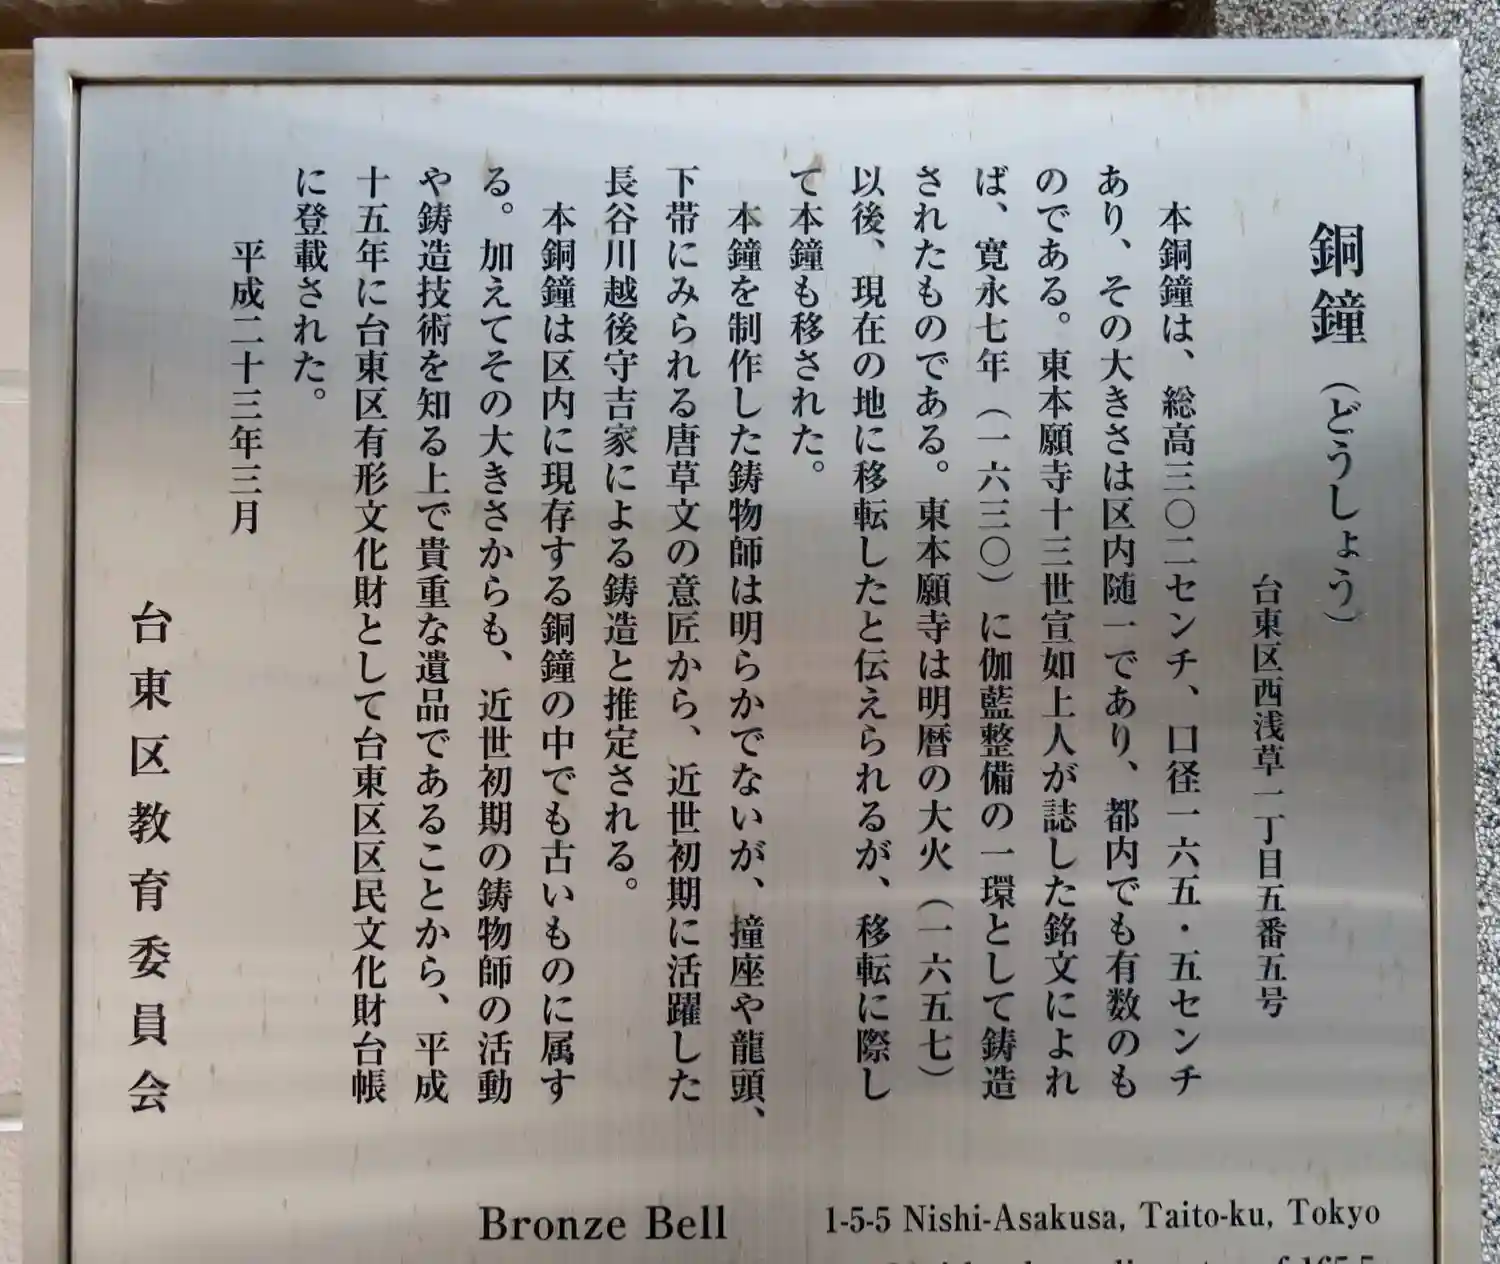 銅鐘（どうしょう）
台東区西浅草一丁目五番五号
本銅鐘は、総高三〇二センチ、口径一六五・五センチ
あり、その大きさは区内随一であり、都内でも有数のも
のである。東本願寺十三世宣如上人が誌した銘文によれ
ば、寛永七年（一六三〇）に伽藍整備の一環として鋳造
されたものである。東本願寺は明暦の大火（一六五七）
以後、現在の地に移転したと伝えられるが、移転に際し
て本鐘も移された。
本鐘を制作した鋳物師は明らかでないが、撞座や龍頭、
下帯にみられる唐草文の意匠から、近世初期に活躍した
長谷川越後守吉家による鋳造と推定される。
本銅鐘は区内に現存する銅鐘の中でも古いものに属す
る。加えてその大きさからも、近世初期の鋳物師の活動
や鋳造技術を知る上で貴重な遺品であることから、平成
十五年に台東区有形文化財として台東区区民文化財台帳
に登載された。
平成二十三年三月
台東区教育委員会
Bronze Bell
1-5-5 Nishi-Asakusa, Taito-ku, Tokyo